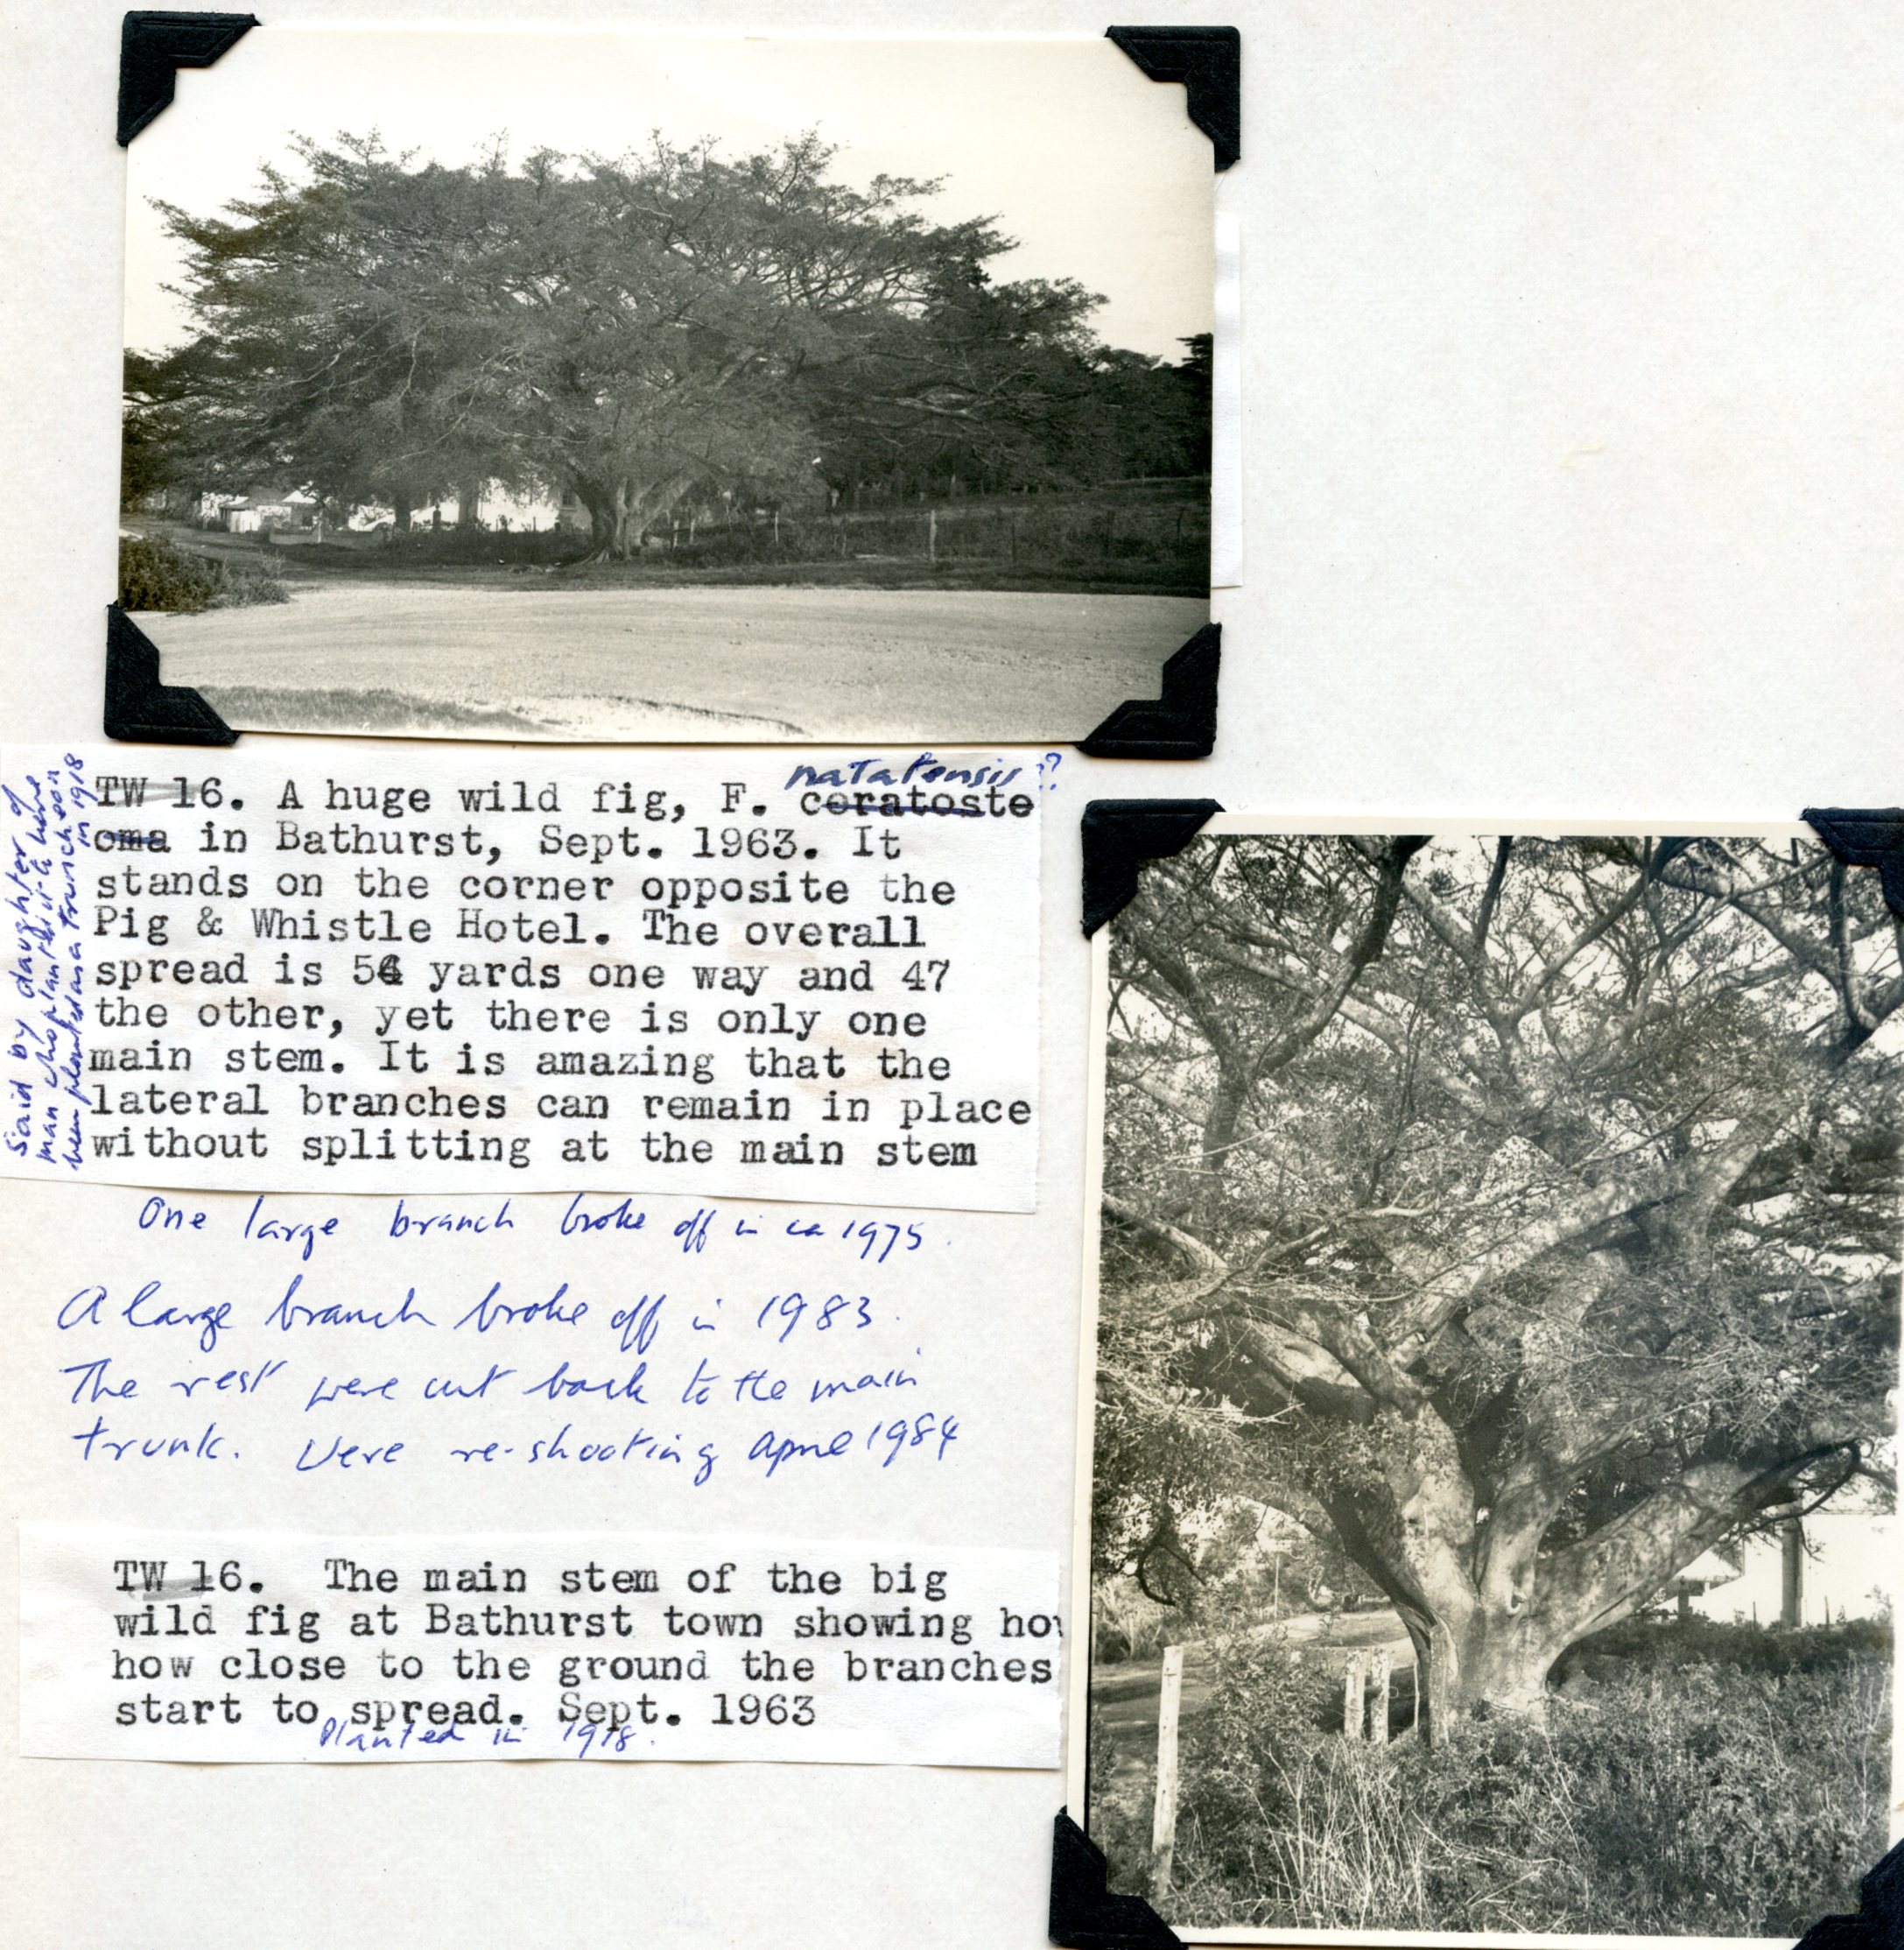 natalensis ??
TW 16. A huge wild fig, F. ceratoste
oma in Bathurst, Sept. 1963. It
stands on the corner opposite the
Pig & Whistle Hotel. The overall
spread is 54 yards one way and 47
the other, yet there is only one
main stem. It is amazing that the
lateral branches can remain in place
without splitting at the main stem
Said by daughter of
man who planted it to have
been planted as a truncheon
in 1918
One large branch broke off in ca 1975.
A large branch broke off in 1983.
The rest were cut back to the main
trunk. Were re-shooting April 1984
TW 16. The main stem of the big
wild fig at Bathurst town showing how
how close to the ground the branches
start to spread. Sept. 1963
Planted in 1918.